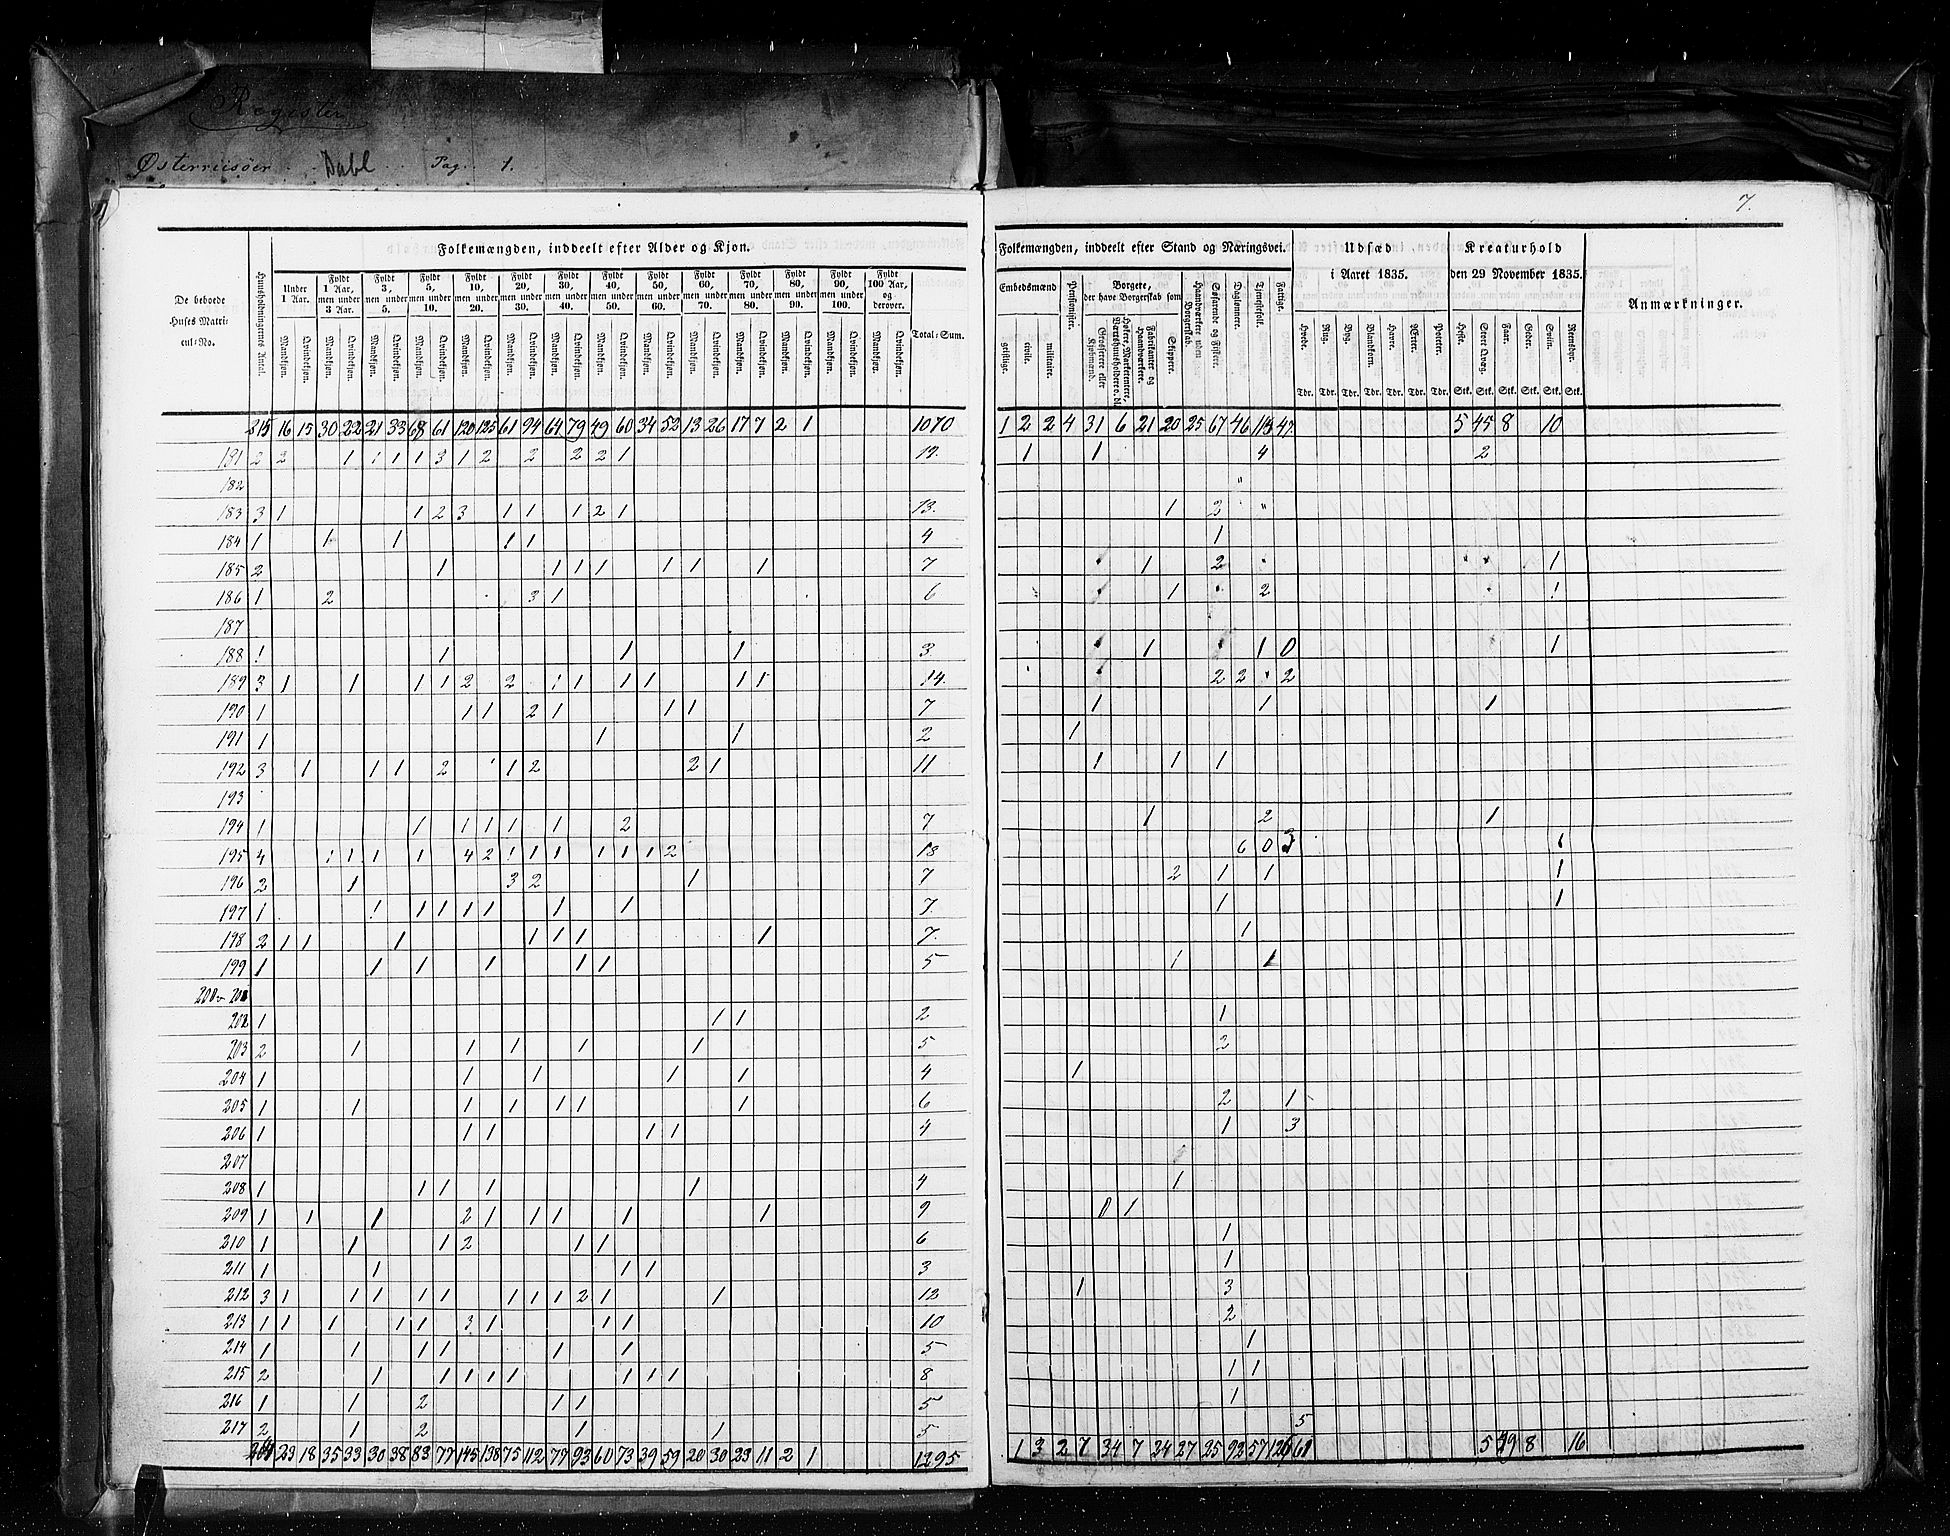 Register
Østerriisøer Dahl Pag. 1.
7.
De beboede Huses Matricul-No.
Huusholdningernes Antal.
Folkemængden, inddeelt efter Alder og Kjøn.
Under 1 Aar.
Fyldt 1 Aar, men under 3 Aar.
Fyldt 3, men under 5.
Fyldt 5, men under 10.
Fyldt 10, men under 20.
Fyldt 20, men under 30.
Fyldt 30, men under 40.
Fyldt 40, men under 50.
Fyldt 50, men under 60.
Fyldt 60, men under 70.
Fyldt 70, men under 80.
Fyldt 80, men under 90.
Fyldt 90, men under 100.
Fyldt 100 Aar, og derover.
Mandkjøn. Qvindekjøn.
Total-Sum.
Folkemængden, inddeelt efter Stand og Næringsvei.
Embedsmænd
geistlige. civile. militaire.
Pensionister.
Borgere, der have Borgerskab som
Grosserere eller Kjøbmænd.
Fabrikanter og Haandværkere.
Skippere.
Haandværkere uden Borgerskab.
Søfarende og Fiskere.
Dagløhnere.
Tjenestefolk.
Fattige.
Udsæd i Aaret 1835.
Hvede. Rug. Byg. Blandkorn. Havre. Erter. Poteter.
Tdr. Tdr. Tdr. Tdr. Tdr. Tdr. Tdr.
Kreaturhold den 29 November 1835.
Heste. Stort Qvæg. Faar. Geder. Sviin. Rensdyr.
Stk. Stk. Stk. Stk. Stk. Stk.
Anmærkninger.
215 16 15 30 22 21 33 68 61 120 125 61 94 64 79 49 60 34 52 13 26 17 7 2 1 1070 1 2 2 4 31 6 21 20 25 67 46 118 47 5 45 8 10
181 2 2 1 1 1 1 3 1 2 2 2 2 1 19 1 1 4 2
182
183 3 1 1 2 3 1 1 1 2 1 13 1 3
184 1 1 1 1 1 4 1
185 2 1 1 1 1 1 1 1 7 1 2 1
186 1 2 3 1 6 1 2 1
187
188 1 1 1 1 3 1 1 0 1
189 3 1 1 1 1 2 2 1 1 1 1 1 1 14 2 2 2
190 1 1 1 2 1 1 1 7 1 1 1
191 1 1 1 2 1
192 3 1 1 1 2 1 2 2 1 11 1 1 1
193
194 1 1 1 1 1 1 2 7 1 2 1
195 4 1 1 1 1 4 2 1 1 1 1 1 1 2 18 6 0 3 1
196 2 1 3 2 1 7 2 1 1 1
197 1 1 1 1 1 1 1 1 7 1 1
198 2 1 1 1 1 1 1 1 7 1
199 1 1 1 1 1 1 5 1 1
200 201
202 1 1 1 2 1
203 2 1 1 1 1 1 5 2
204 1 1 1 1 1 4 1
205 1 1 1 1 1 1 1 6 2 1
206 1 1 1 1 1 4 1 3
207
208 1 1 1 1 1 4 1
209 1 1 1 2 1 1 1 1 1 9 0 1
210 1 1 1 2 1 1 6 1
211 1 1 1 1 3 1
212 3 1 1 1 1 1 1 1 1 2 1 1 12 1 3
213 1 1 1 1 1 3 1 1 1 10 2
214 1 1 1 1 1 1 5 1
215 2 1 1 1 1 1 1 1 1 8 1 1
216 1 1 2 1 1 5 1
217 2 1 2 1 1 5 5
23 18 35 33 30 38 83 77 145 138 75 112 77 93 60 73 39 59 20 30 23 11 2 1 1295 1 3 2 7 34 7 24 27 25 92 57 126 61 5 49 8 16